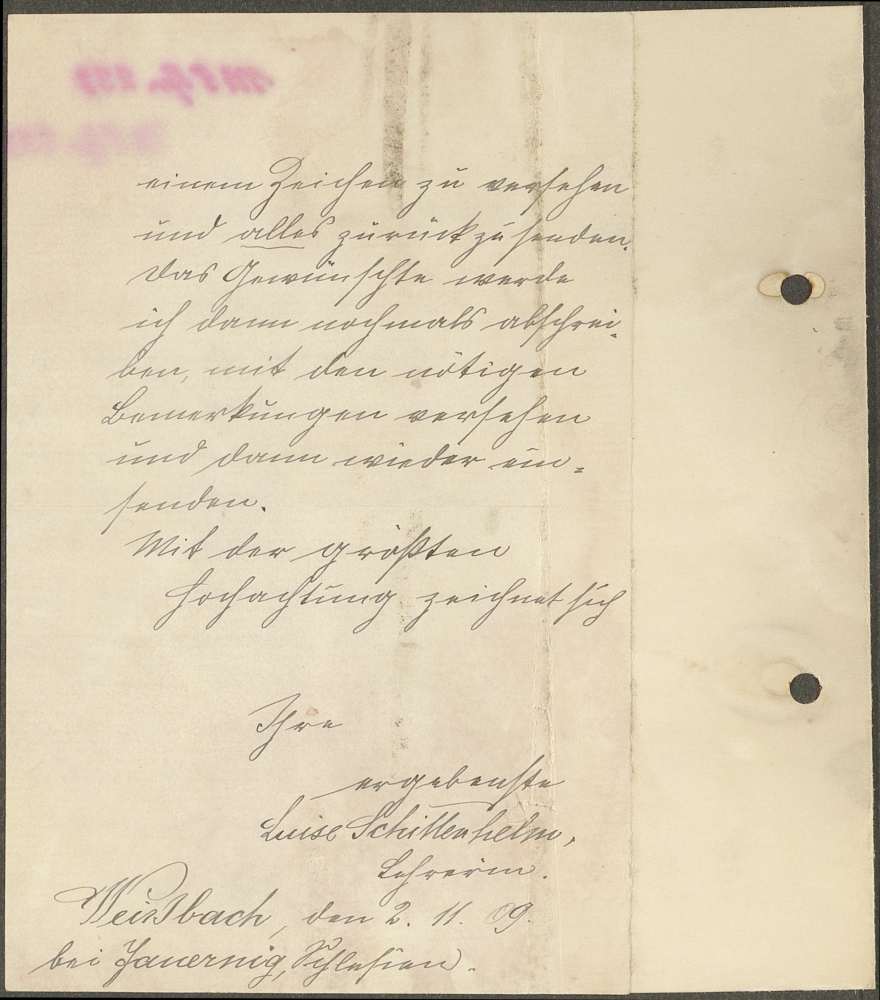 einem Zeichen zu versehen
und alles zurückzusenden.
Das Gewünschte werde
ich dann nochmals abschrei-
ben, mit den nötigen
Bemerkungen versehen
und dann wieder ein-
senden.
Mit der größten
Hochachtung zeichnet sich
Ihre
ergebenste
Luise Schittenhelm,
Lehrerin.
Weißbach, den 2. 11. 09.
bei Jauernig, Schlesien.